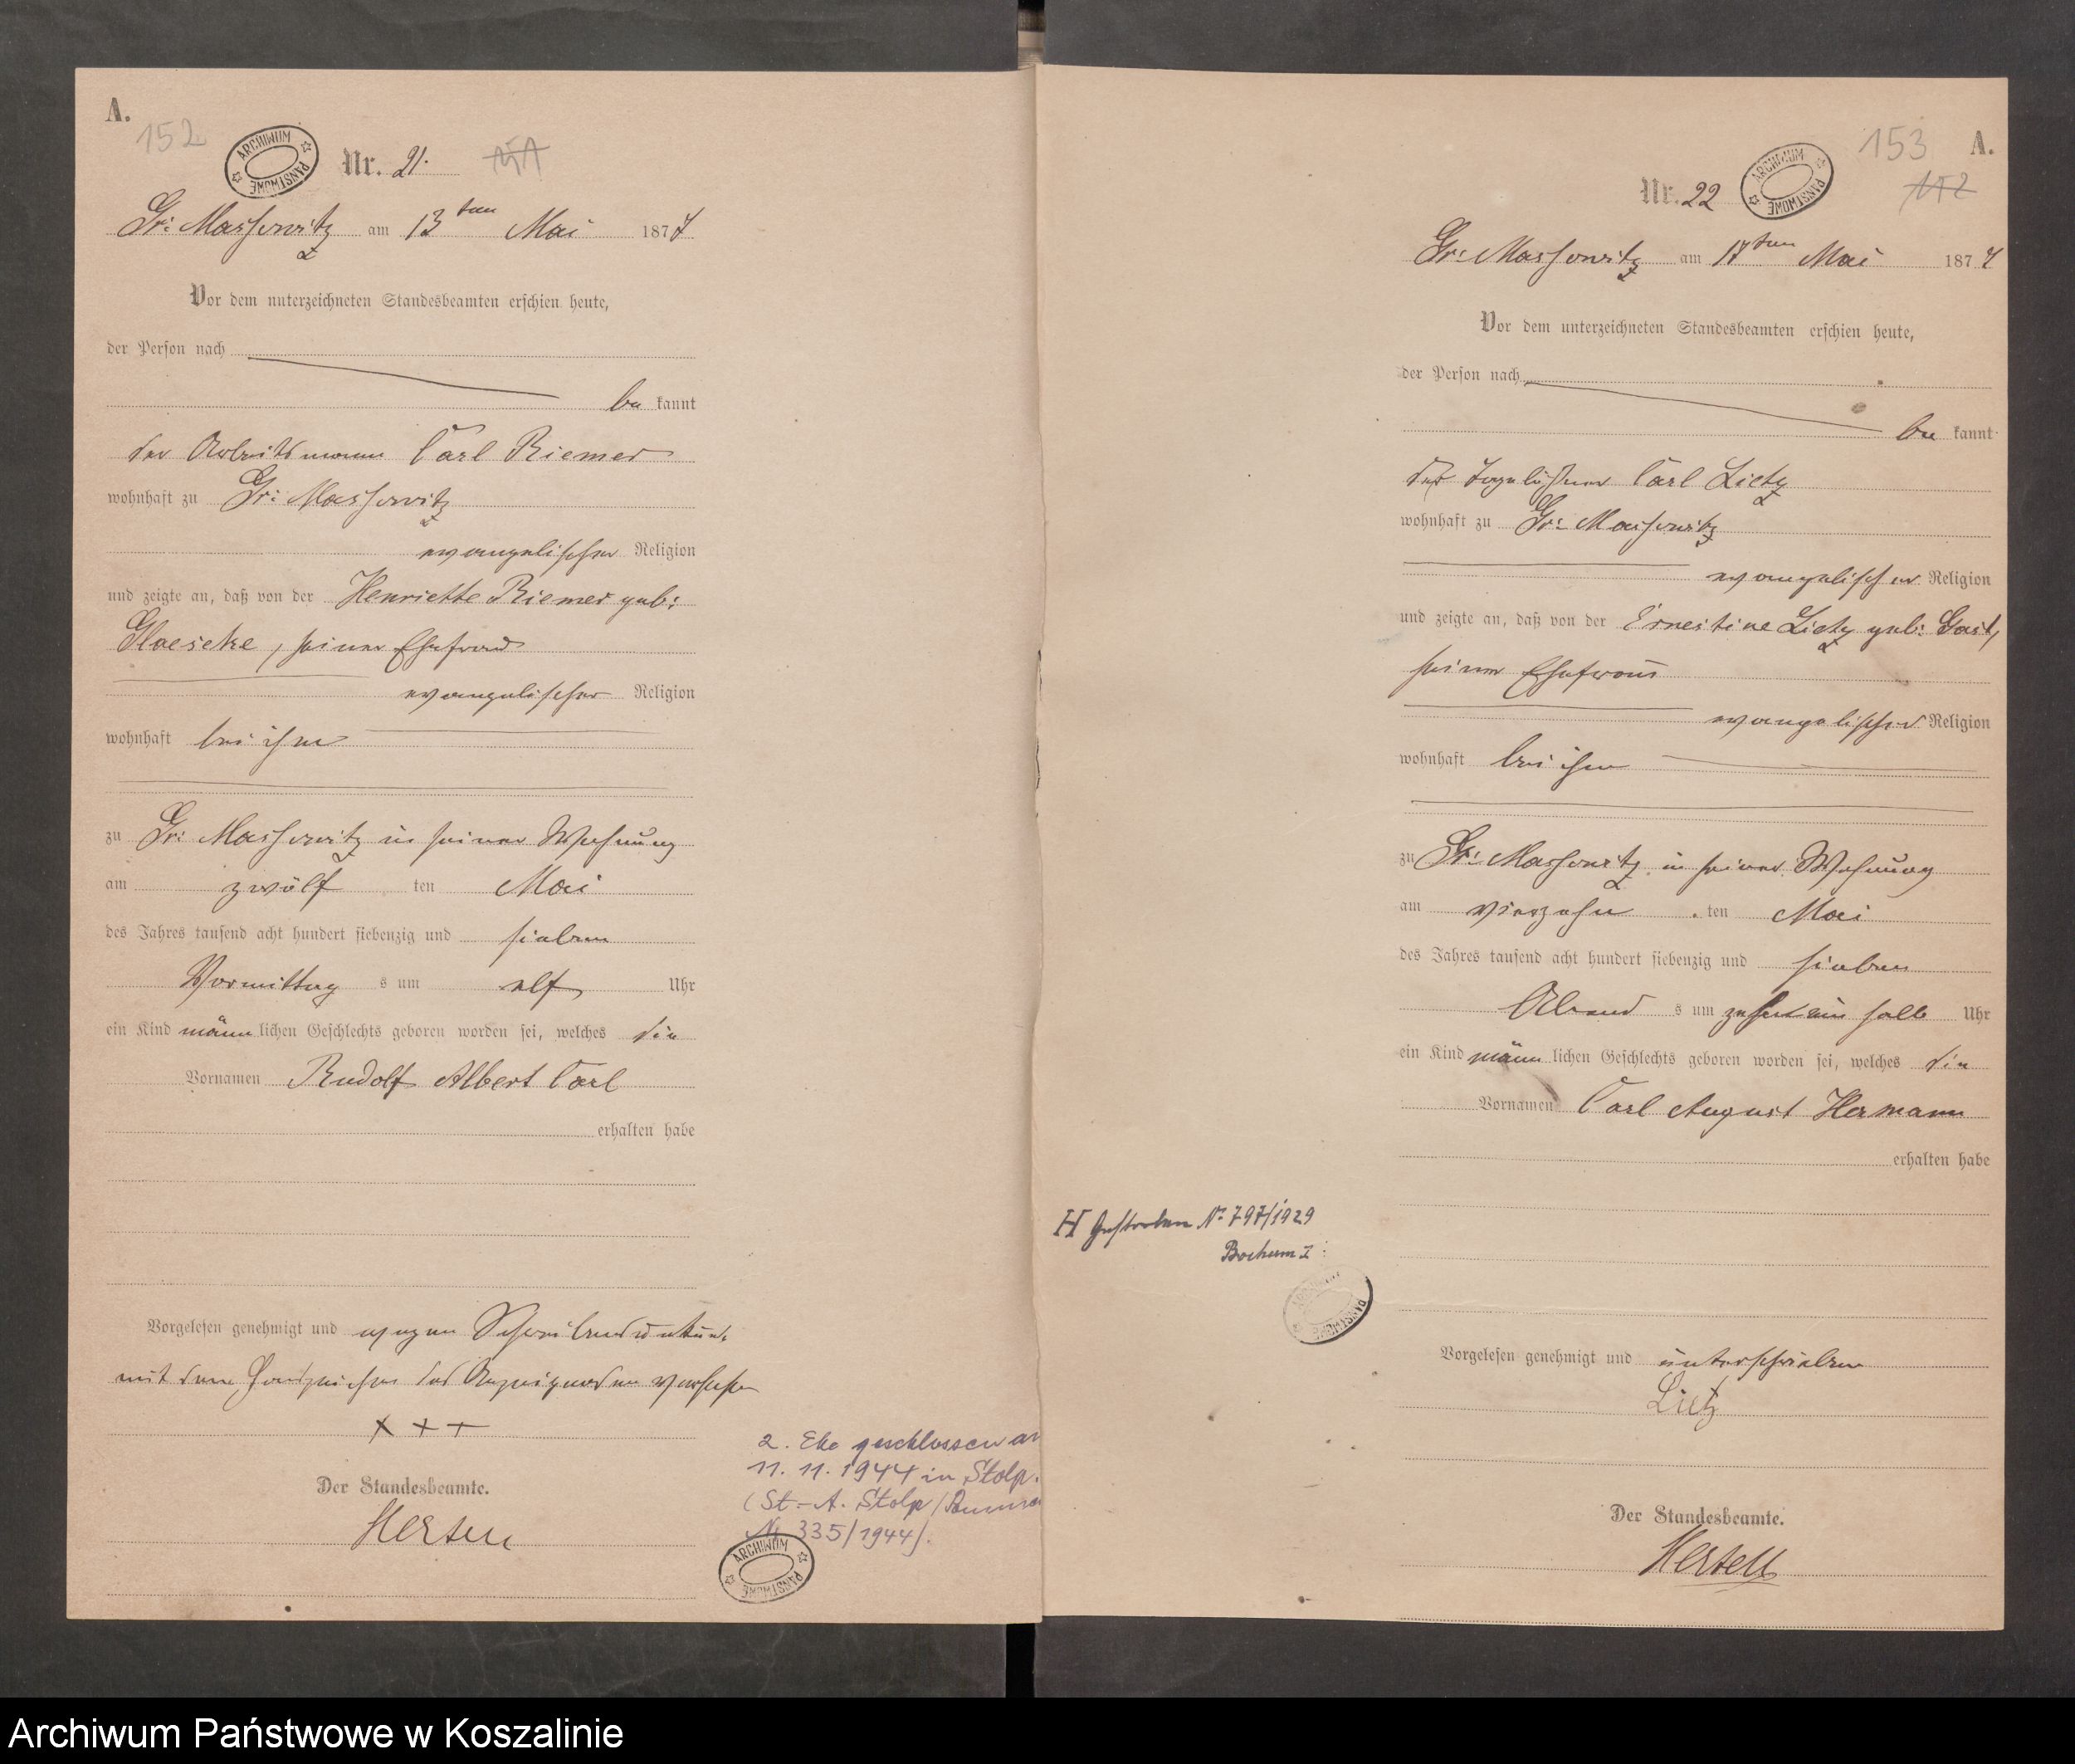 A.
152
ARCHIWUM PAŃSTWOWE
Nr. 21.
151
Gr: Massowitz am 13ten Mai 1877
Vor dem unterzeichneten Standesbeamten erschien heute,
der Person nach
be kannt
der Arbeitsmann Carl Riemer
wohnhaft zu Gr: Massowitz
evangelischer Religion
und zeigte an, daß von der Henriette Riemer geb:
Glaeseke, seiner Ehefrau
evangelischer Religion
wohnhaft bei ihm
zu Gr: Massowitz in seiner Wohnung
am zwölf ten Mai
des Jahres tausend acht hundert siebenzig und sieben
Vormittag s um elf Uhr
ein Kind männ lichen Geschlechts geboren worden sei, welches die
Vornamen Rudolf Albert Carl
erhalten habe
Vorgelesen genehmigt und wegen Schreibensunkunde
mit dem Handzeichen des Anzeigenden versehen
+ + +
Der Standesbeamte.
Hertell
2. Ehe geschlossen am
11. 11. 1944 in Stolp.
(St.-A. Stolp/Pomm
Nr 335/1944).
ARCHIWUM PAŃSTWOWE
153 A.
Nr. 22
ARCHIWUM PAŃSTWOWE
152
Gr: Massowitz am 17ten Mai 1877
Vor dem unterzeichneten Standesbeamten erschien heute,
der Person nach
be kannt
der Tagelöhner Carl Lietz
wohnhaft zu Gr: Massowitz
evangelischer Religion
und zeigte an, daß von der Ernestine Lietz geb: Gast,
seiner Ehefrau
evangelischer Religion
wohnhaft bei ihm
zu Gr: Massowitz in seiner Wohnung
am vierzehn ten Mai
des Jahres tausend acht hundert siebenzig und sieben
Abend s um zehn ein halb Uhr
ein Kind männ lichen Geschlechts geboren worden sei, welches die
Vornamen Carl August Hermann
erhalten habe
H Gestorben Nr. 797/1929
Bochum I
ARCHIWUM PAŃSTWOWE
Vorgelesen genehmigt und unterschrieben
Lietz
Der Standesbeamte.
Hertell
Archiwum Państwowe w Koszalinie